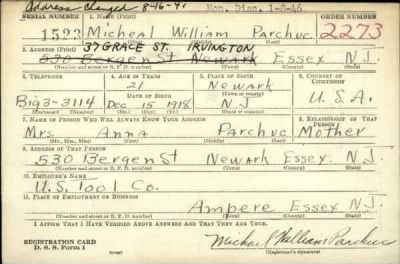 Address Changed 8-16-41 Hon. Disc. 1-8-46
SERIAL NUMBER 1. NAME (Print) ORDER NUMBER
1523 Micheal William Parchuc 2273
(First) (Middle) (Last)
37 GRACE ST. IRVINGTON
2. ADDRESS (Print)
530 Bergen St Newark Essex N.J.
(Number and street or R. F. D. number) (Town) (County) (State)
3. TELEPHONE 4. AGE IN YEARS 5. PLACE OF BIRTH 6. COUNTRY OF CITIZENSHIP
21 Newark
DATE OF BIRTH (Town or county)
Big 3-3114 Dec. 15 1918 N J U.S.A.
(Exchange) (No.) (Mo.) (Day) (Yr.) (State or country)
7. NAME OF PERSON WHO WILL ALWAYS KNOW YOUR ADDRESS 8. RELATIONSHIP OF THAT PERSON
Mrs. Anna Parchuc Mother
(Mr., Mrs., Miss) (First) (Middle) (Last)
9. ADDRESS OF THAT PERSON
530 Bergen St Newark Essex N.J.
(Number and street or R. F. D. number) (Town) (County) (State)
10. EMPLOYER'S NAME
U.S. Tool Co.
11. PLACE OF EMPLOYMENT OR BUSINESS
Ampere Essex N.J.
(Number and street or R. F. D. number) (Town) (County) (State)
I AFFIRM THAT I HAVE VERIFIED ABOVE ANSWERS AND THAT THEY ARE TRUE.
REGISTRATION CARD
D. S. S. Form 1 Michael William Parchuc
(Registrant's signature)